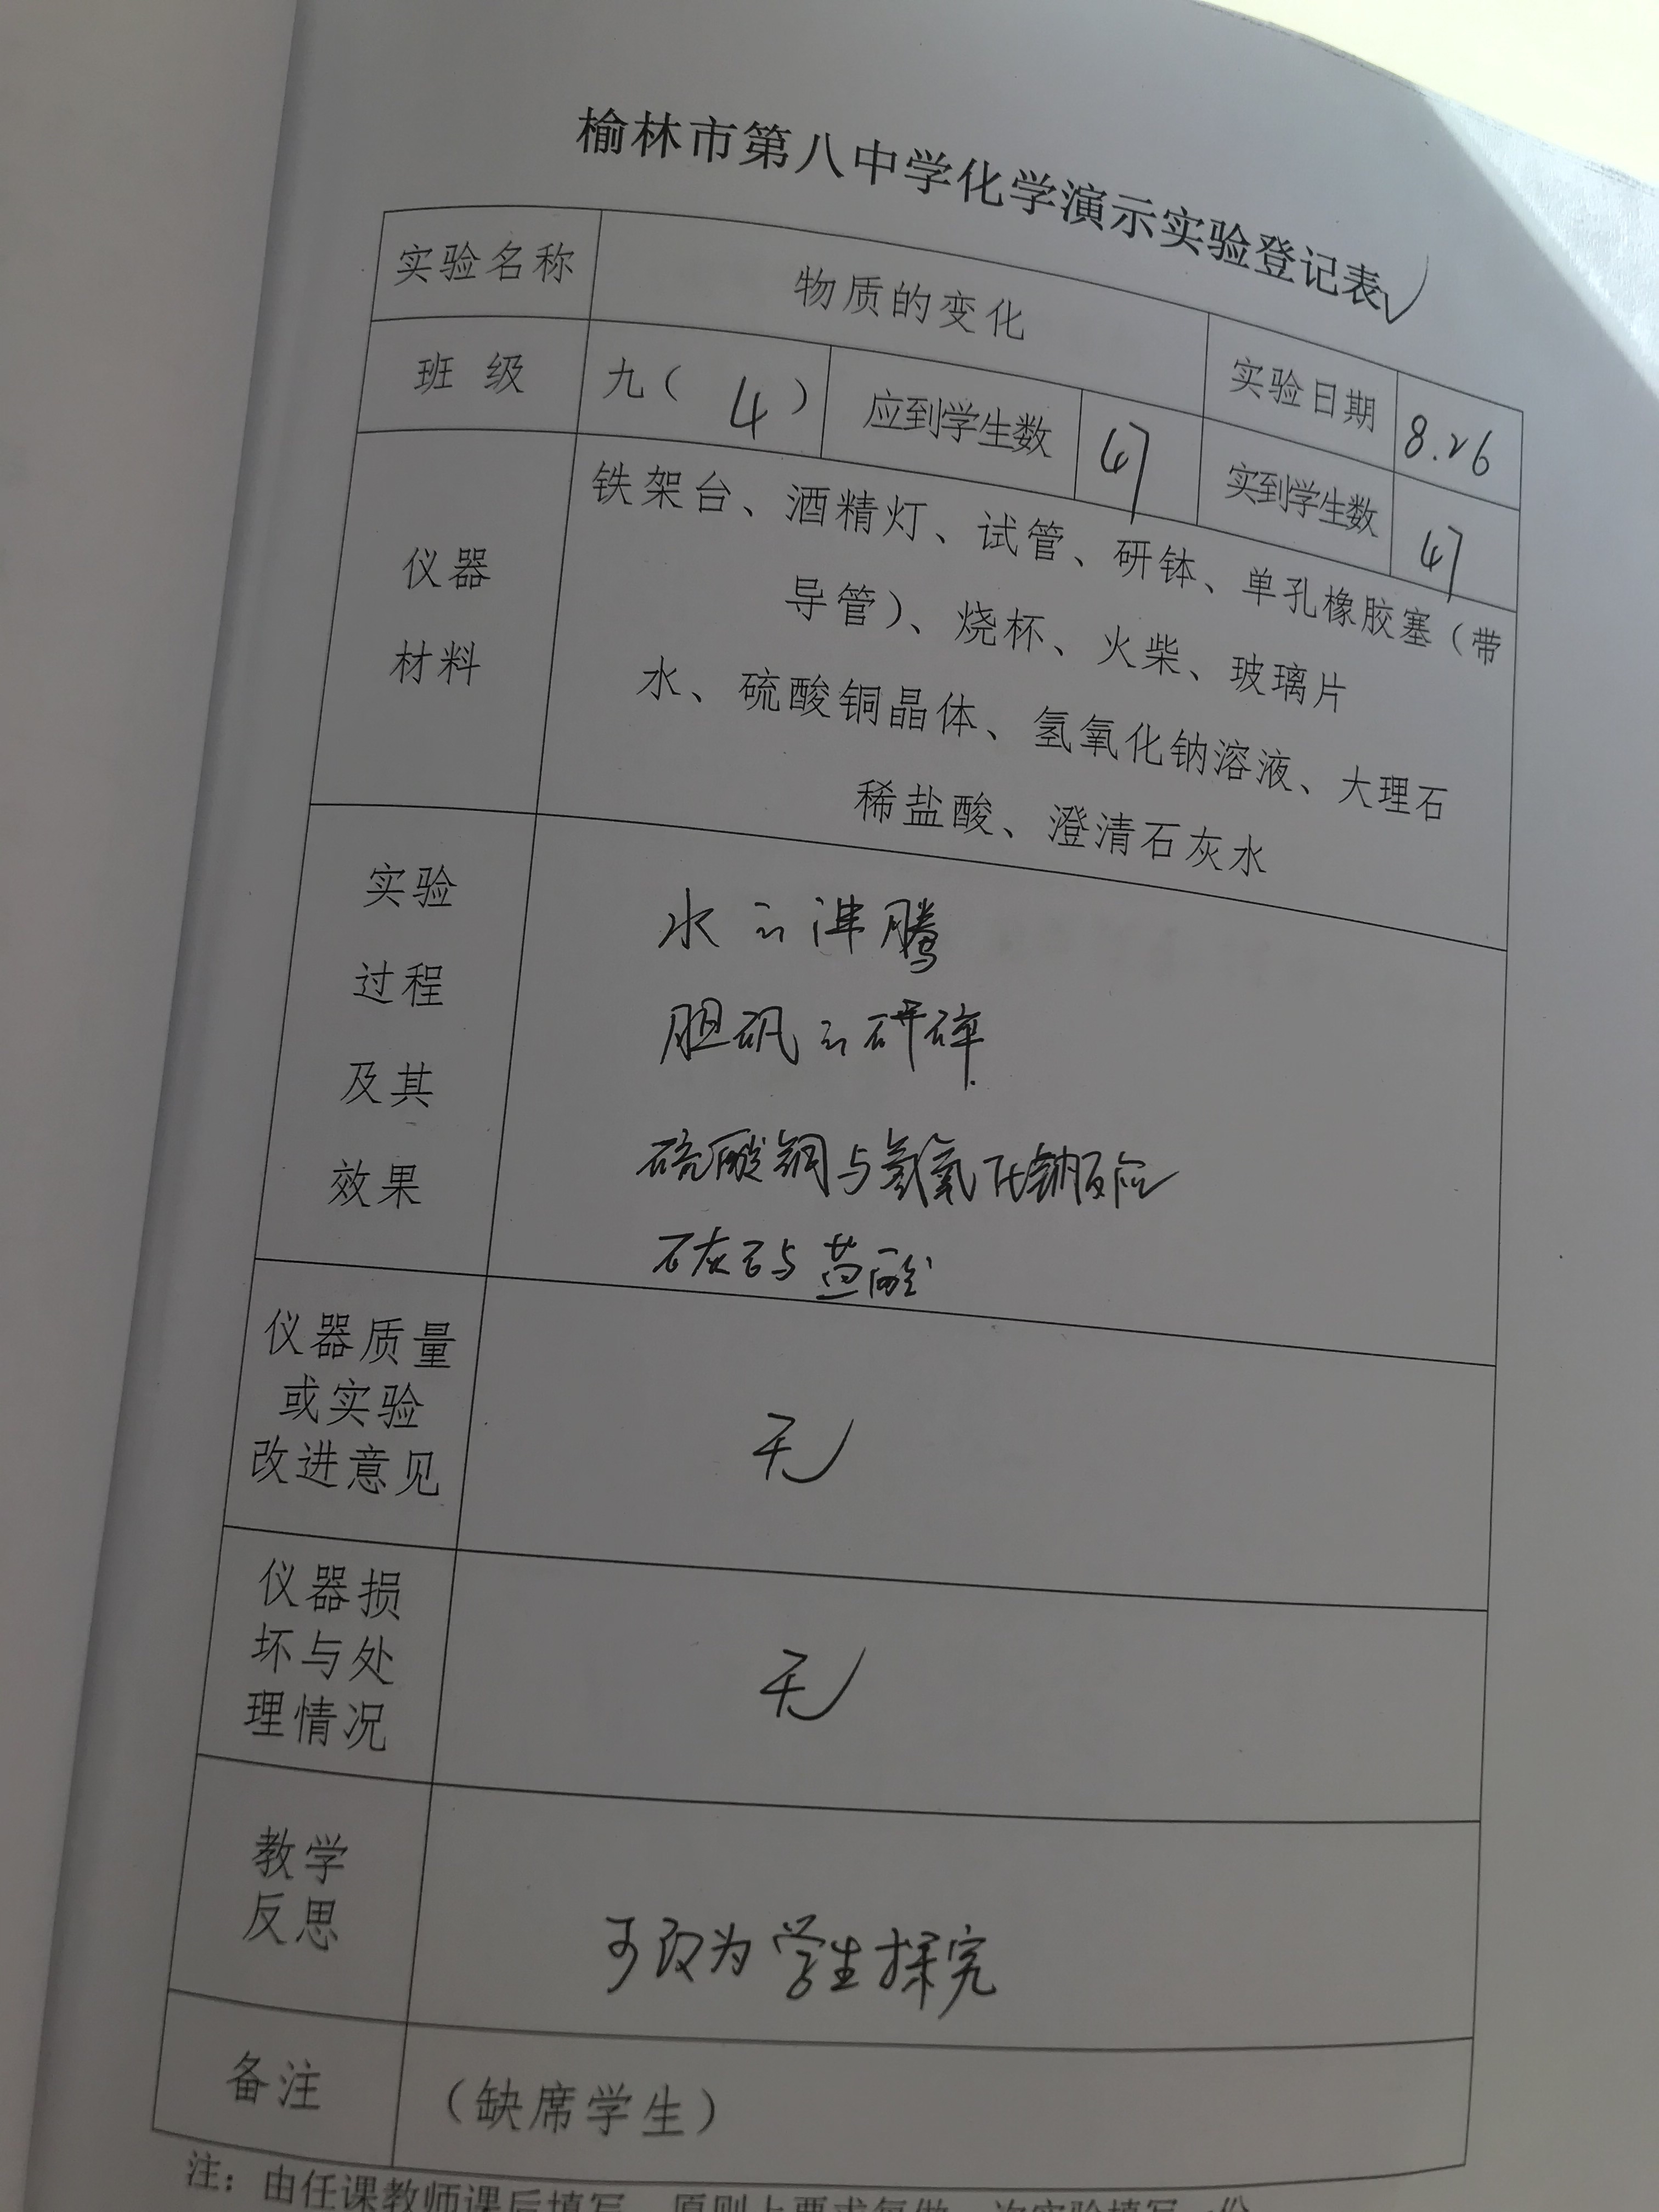 榆林市第八中学化学演示实验登记表
实验名称 物质的变化 实验日期 8.26
班 级 九（ 4 ） 应到学生数 47 实到学生数 47
仪器
材料
铁架台、酒精灯、试管、研钵、单孔橡胶塞（带
导管）、烧杯、火柴、玻璃片
水、硫酸铜晶体、氢氧化钠溶液、大理石
稀盐酸、澄清石灰水
实验
过程
及其
效果
水的沸腾
胆矾的研碎
硫酸铜与氢氧化钠反应
石灰石与盐酸
仪器质量
或实验
改进意见
无
仪器损
坏与处
理情况
无
教学
反思
可改为学生探究
备注 （缺席学生）
注：由任课教师课后填写，原则上要求每做一次实验填写一份